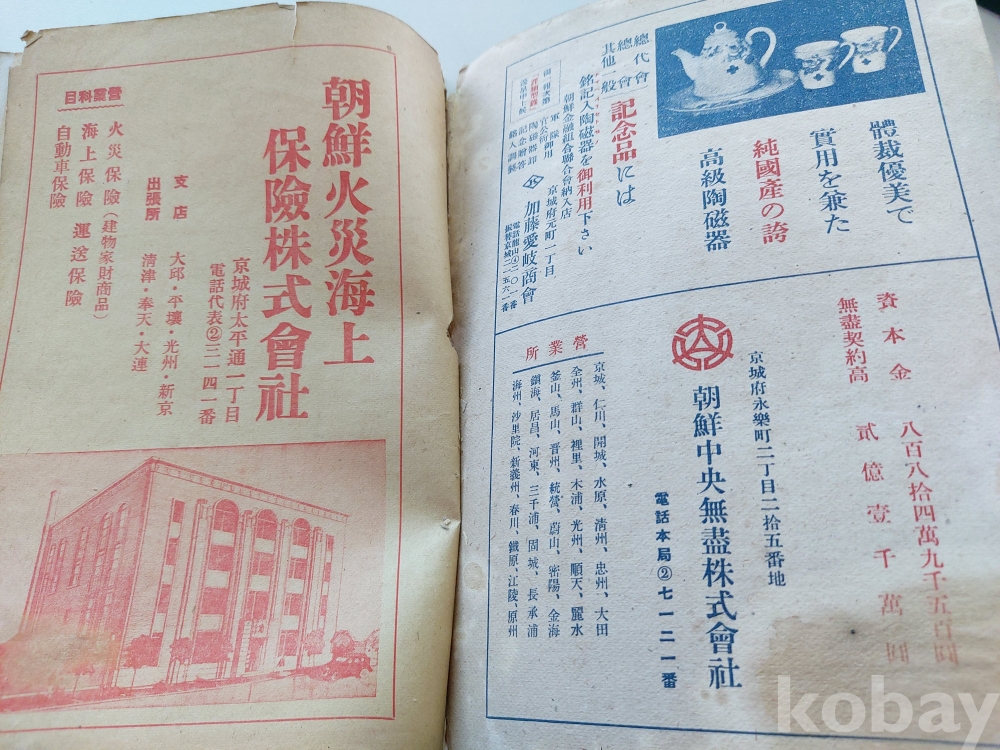 朝鮮火災海上
保險株式會社
京城府太平通一丁目
電話代表②三一四一番
支店 大邱・平壤・光州・新京
出張所 淸津・奉天・大連
營業科目
火災保險(建物家財商品)
海上保險 運送保險
自動車保險
體裁優美で
實用を兼た
純國産の誇
高級陶磁器
總代會
總會
其他一般
記念品には
銘記入陶磁器を御利用下さい
朝鮮金融組合聯合會納入店
軍隊
官公所御用
陶磁器卸
記念贈答
銘入調製
京城府元町一丁目
加藤愛岐商會
電話龍山④二〇一番
振替京城二五六一番
資本金 八百八拾四萬九千五百圓
無盡契約高 貳億壹千萬圓
京城府永樂町二丁目二拾五番地
朝鮮中央無盡株式會社
電話本局②七一二一番
營業所
京城、仁川、開城、水原、淸州、忠州、大田
全州、群山、裡里、木浦、光州、順天、麗水
釜山、馬山、晋州、統營、蔚山、密陽、金海
鎭海、居昌、河東、三千浦、固城、長承浦
海州、沙里院、新義州、春川、鐵原、江陵、原州
kobay